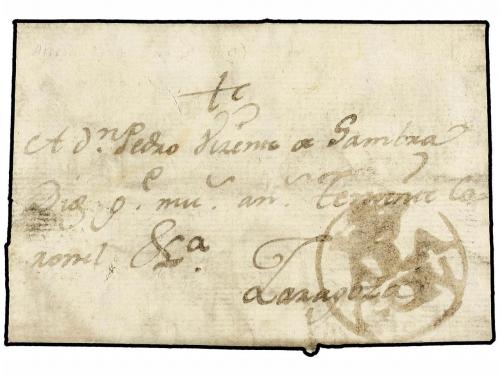 A Dⁿ. Pedro Vizente de Gambra
Dios g.ᵉ mu.ˢ an.ˢ Teniente Co
ronel &ᵃ.
Zaragoza